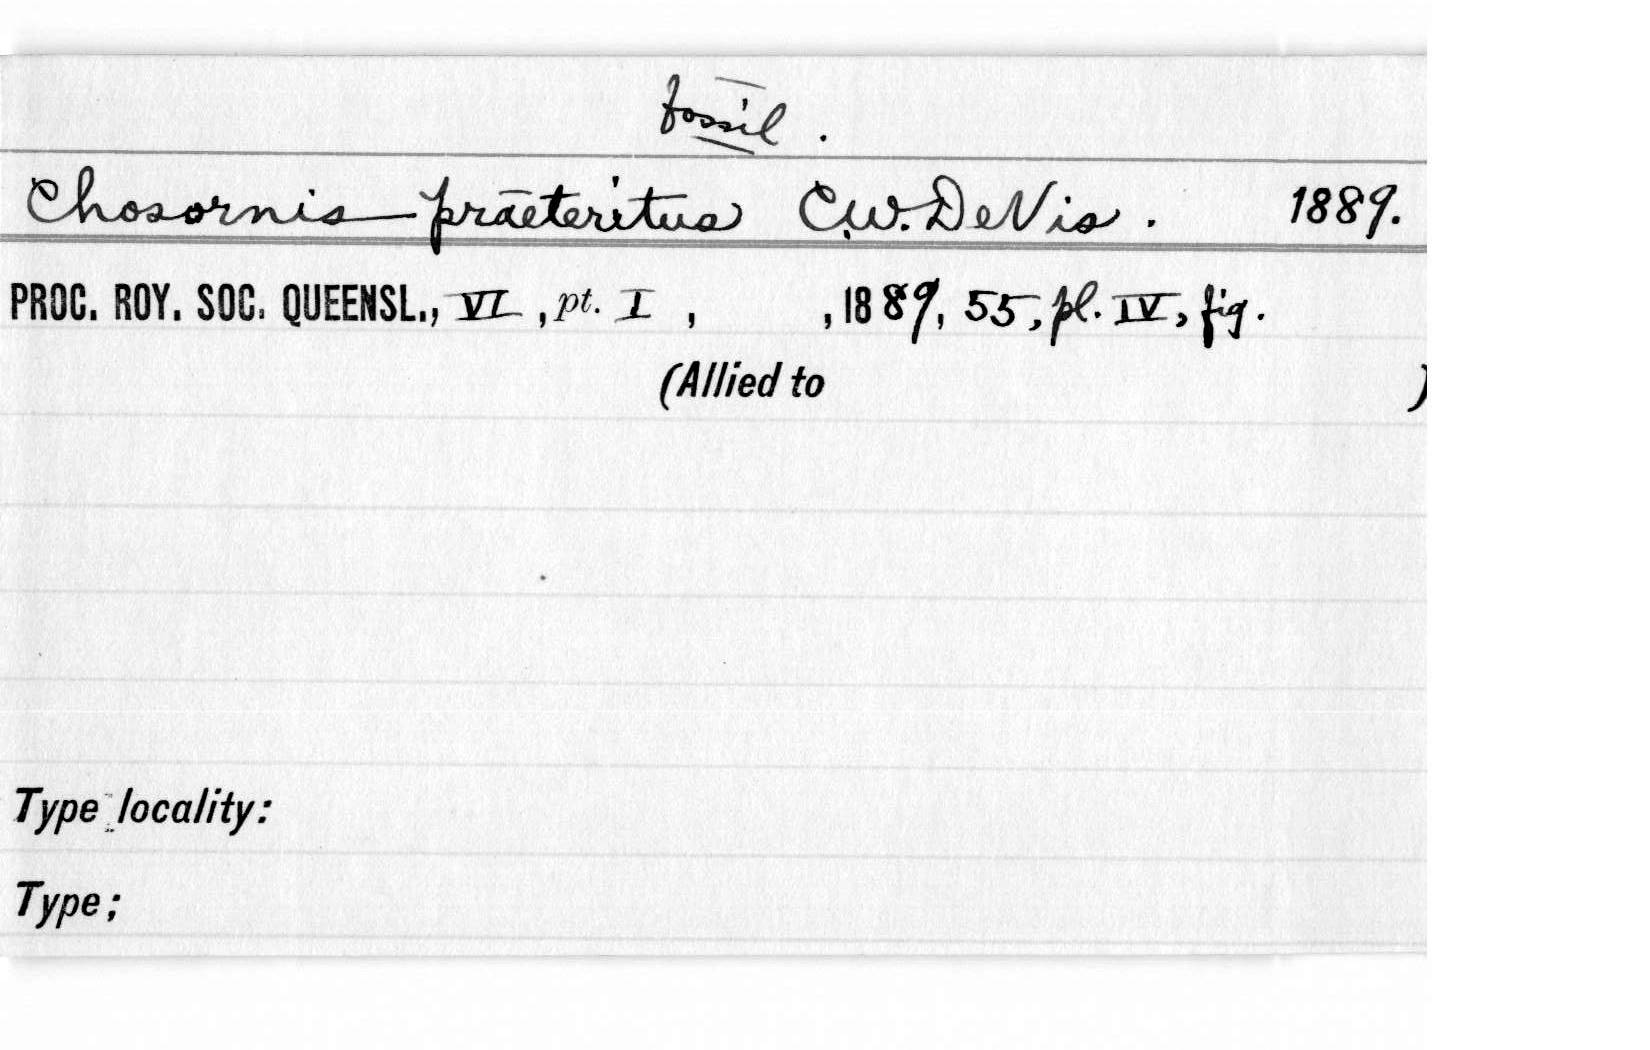 fossil.
Chosornis praeteritus C.W. DeVis. 1889.
PROC. ROY. SOC. QUEENSL., VI, pt. I, , 1889, 55, pl. IV, fig.
(Allied to )
Type locality:
Type;